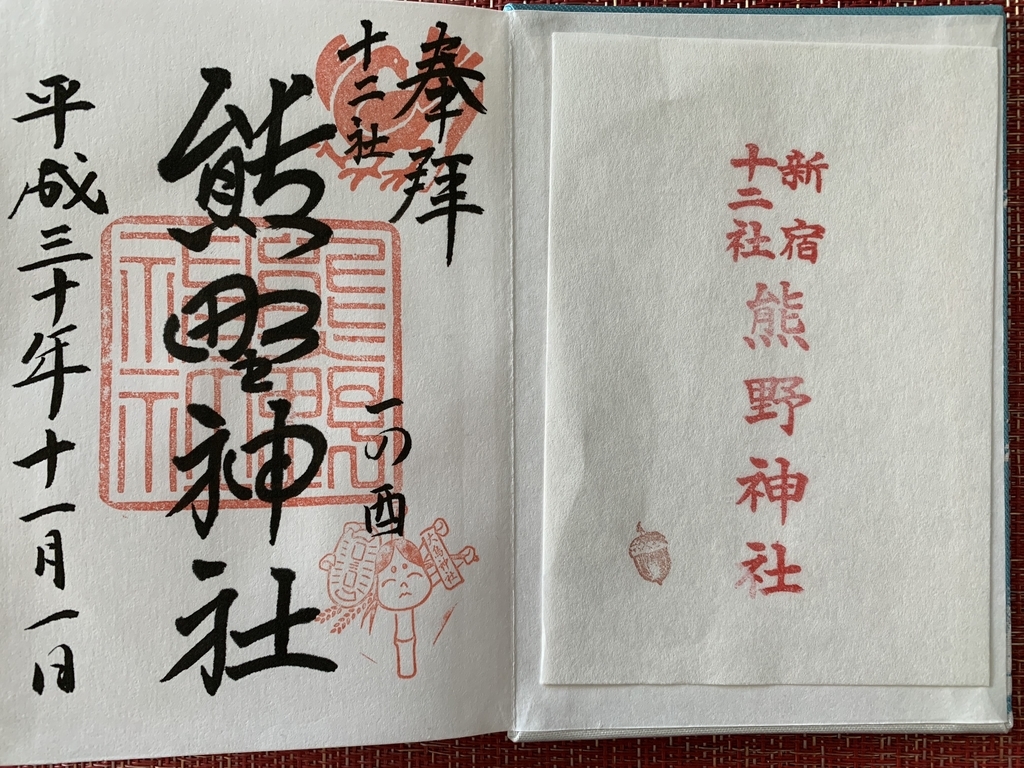 奉拝
十二社
熊野神社
一の酉
大鳥神社
平成三十年十一月一日
新宿
十二社
熊野神社